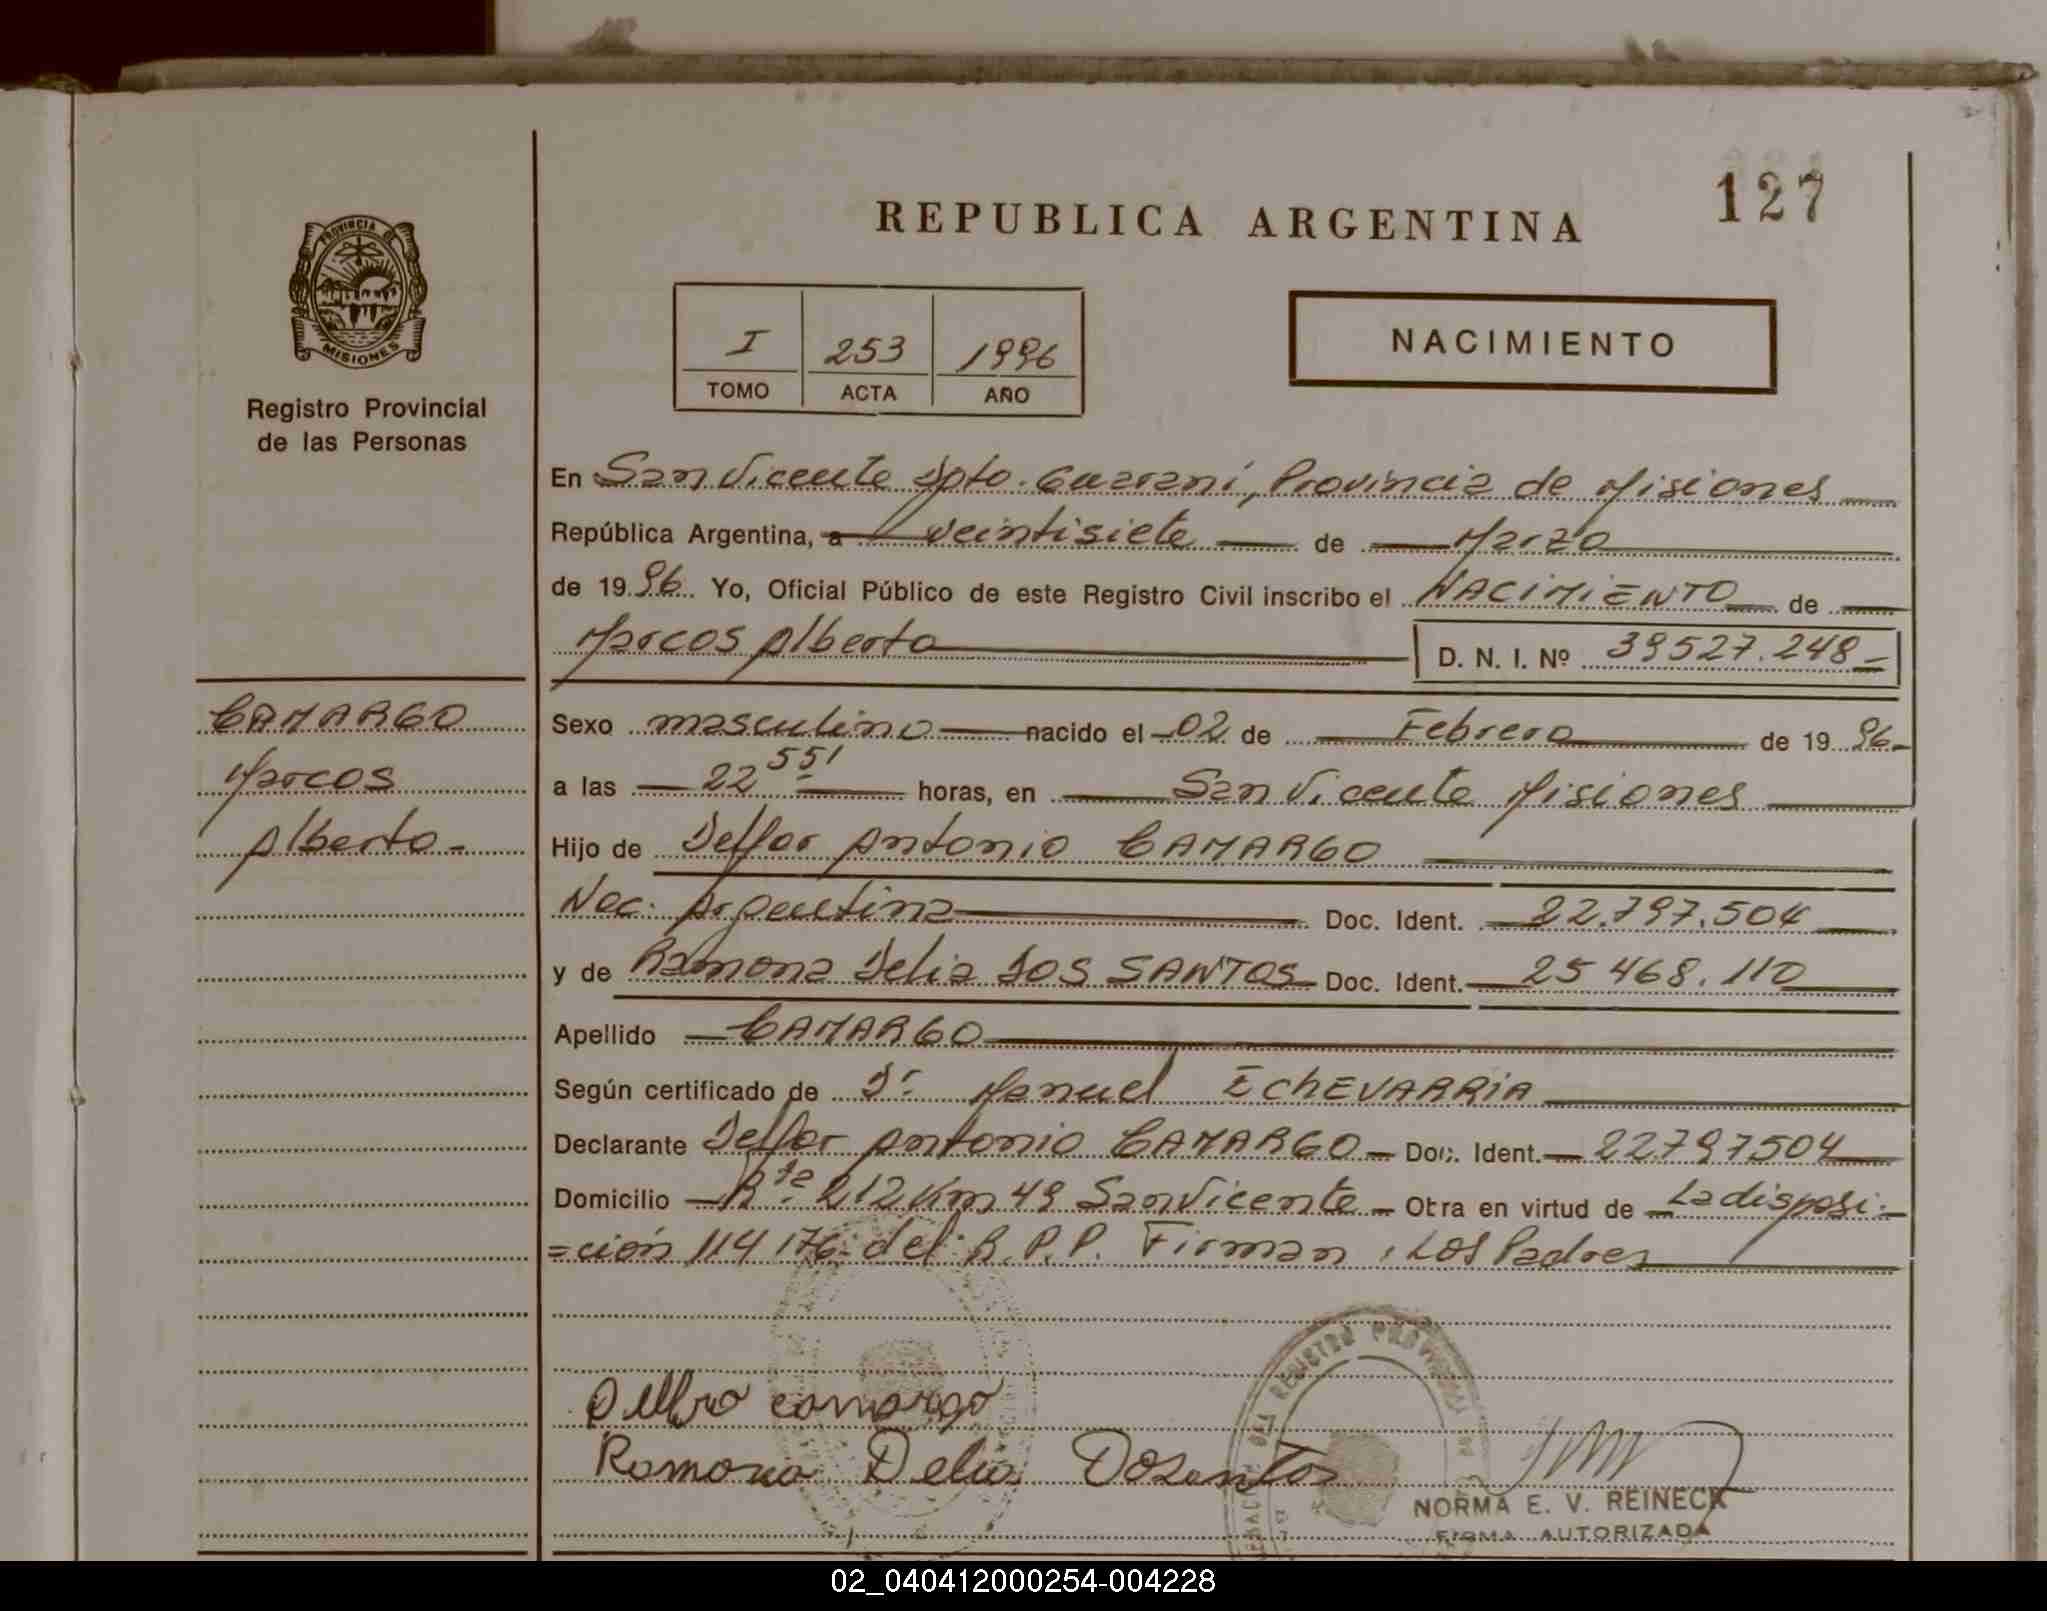 127
REPUBLICA ARGENTINA
PROVINCIA DE
MISIONES
Registro Provincial
de las Personas
I 253 1996
TOMO ACTA AÑO
NACIMIENTO
En San Vicente Dpto. Guaraní, Provincia de Misiones
República Argentina, a veintisiete de Marzo
de 1996. Yo, Oficial Público de este Registro Civil inscribo el NACIMIENTO de
Marcos Alberto D. N. I. Nº 39527.248
CAMARGO
Marcos
Alberto-
Sexo masculino nacido el 02 de Febrero de 1996-
a las 22 55' horas, en San Vicente Misiones
Hijo de Delfor Antonio CAMARGO
Nac. Argentina Doc. Ident. 22.797.504
y de Ramona Delia DOS SANTOS Doc. Ident. 25 468.110
Apellido CAMARGO
Según certificado de Dr. Manuel EChEVARRiA
Declarante Delfor Antonio CAMARGO Doc. Ident. 22797504
Domicilio Rta. 212 Km 49 San Vicente Otra en virtud de La disposi-
=ción 114 176 del R.P.P. Firman, Los Padres
camargo
Ramona Delia Dosantos
REGISTRO PROVINCIAL
NORMA E. V. REINECK
FIRMA AUTORIZADA
02_040412000254-004228